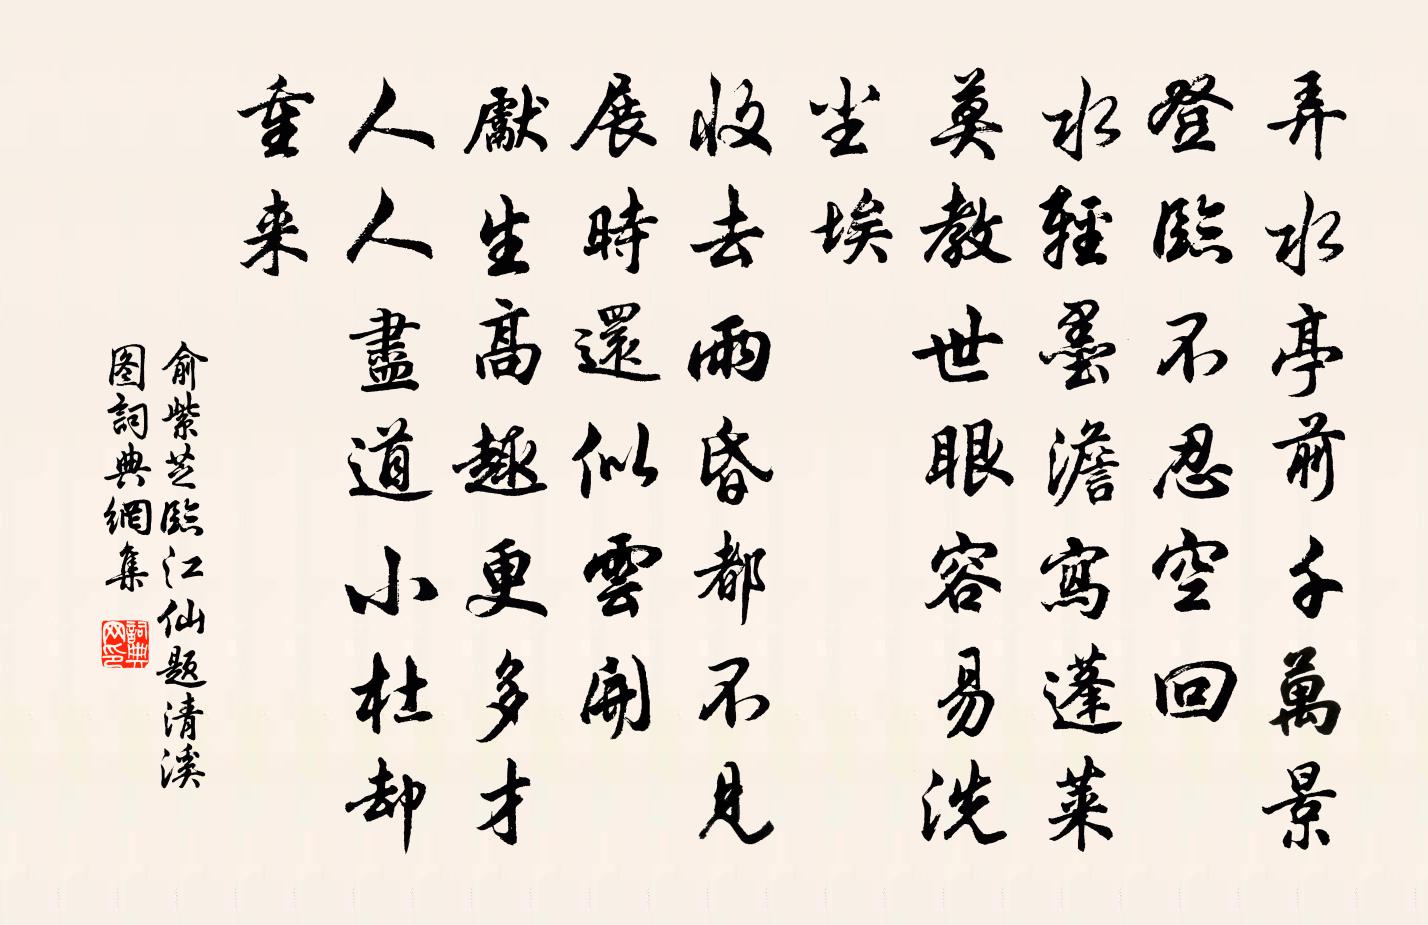 弄水亭前千萬景
登臨不忍空回
水輕墨澹寫蓬萊
莫教世眼容易洗
尘埃
收去雨昏都不見
展時還似雲開
獻生高趣更多才
人人盡道小杜却
重来
俞紫芝臨江仙题清溪
图詞典網集
詞典网印